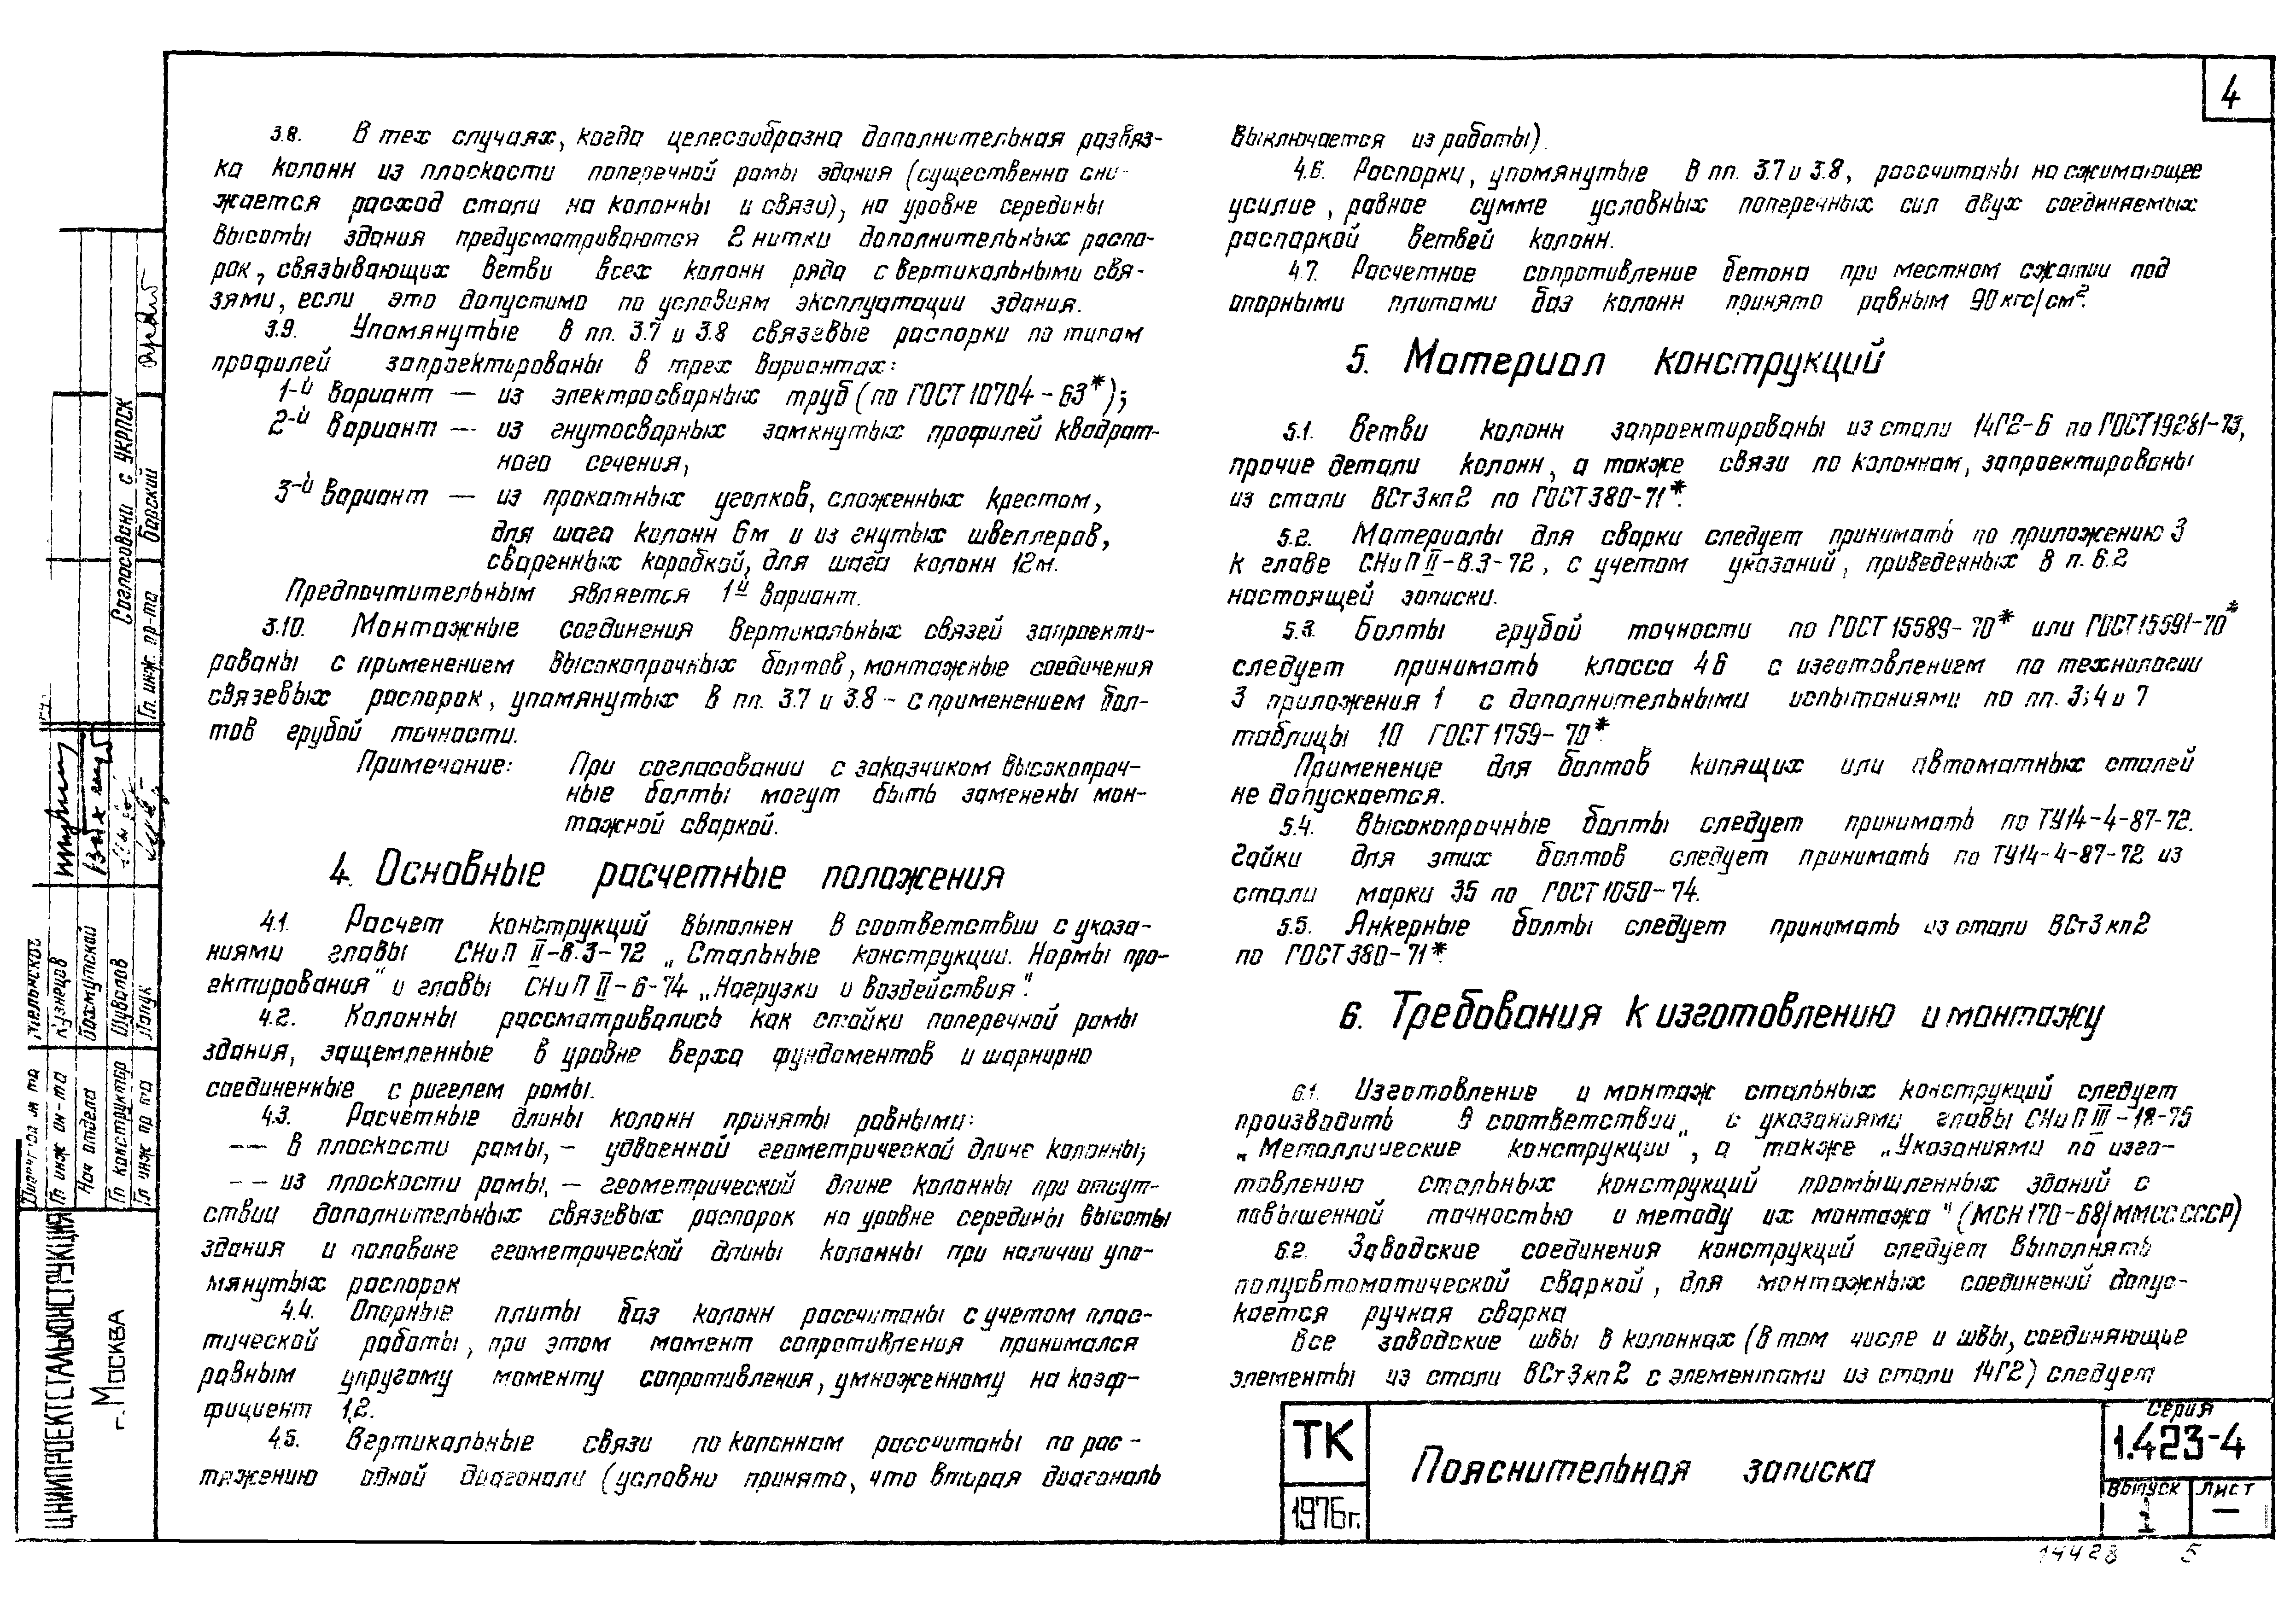 4
3.8. В тех случаях, когда целесообразна дополнительная развяз-
ка колонн из плоскости поперечной рамы здания (существенно сни-
жается расход стали на колонны и связи), на уровне середины
высоты здания предусматриваются 2 нитки дополнительных распо-
рок, связывающих ветви всех колонн ряда с вертикальными свя-
зями, если это допустимо по условиям эксплуатации здания.
3.9. Упомянутые в пп. 3.7 и 3.8 связевые распорки по типам
профилей запроектированы в трех вариантах:
1-й вариант — из электросварных труб (по ГОСТ 10704-63*);
2-й вариант — из гнутосварных замкнутых профилей квадрат-
ного сечения,
3-й вариант — из прокатных уголков, сложенных крестом,
для шага колонн 6м и из гнутых швеллеров,
сваренных коробкой, для шага колонн 12м.
Предпочтительным является 1й вариант.
3.10. Монтажные соединения вертикальных связей запроекти-
рованы с применением высокопрочных болтов, монтажные соединения
связевых распорок, упомянутых в пп. 3.7 и 3.8 - с применением бол-
тов грубой точности.
Примечание: При согласовании с заказчиком высокопроч-
ные болты могут быть заменены мон-
тажной сваркой.
4. Основные расчетные положения
4.1. Расчет конструкций выполнен в соответствии с указа-
ниями главы СНиП II-В.3-72 „Стальные конструкции. Нормы про-
ектирования" и главы СНиП II-6-74 „Нагрузки и воздействия".
4.2. Колонны рассматривались как стойки поперечной рамы
здания, защемленные в уровне верха фундаментов и шарнирно
соединенные с ригелем рамы.
4.3. Расчетные длины колонн приняты равными:
-- в плоскости рамы, — удвоенной геометрической длине колонны;
-- из плоскости рамы, — геометрической длине колонны при отсут-
ствии дополнительных связевых распорок на уровне середины высоты
здания и половине геометрической длины колонны при наличии упо-
мянутых распорок
4.4. Опорные плиты баз колонн рассчитаны с учетом плас-
тической работы, при этом момент сопротивления принимался
равным упругому моменту сопротивления, умноженному на коэф-
фициент 1,2.
4.5. Вертикальные связи по колоннам рассчитаны по рас-
тяжению одной диагонали (условно принято, что вторая диагональ
выключается из работы).
4.6. Распорки, упомянутые в пп. 3.7 и 3.8, рассчитаны на сжимающее
усилие, равное сумме условных поперечных сил двух соединяемых
распоркой ветвей колонн.
4.7. Расчетное сопротивление бетона при местном сжатии под
опорными плитами баз колонн принято равным 90 кгс/см².
5. Материал конструкций
5.1. Ветви колонн запроектированы из стали 14Г2-6 по ГОСТ 19281-73,
прочие детали колонн, а также связи по колоннам, запроектированы
из стали ВСт3кп2 по ГОСТ 380-71*.
5.2. Материалы для сварки следует принимать по приложению 3
к главе СНиП II-В.3-72, с учетом указаний, приведенных в п. 6.2
настоящей записки.
5.3. Болты грубой точности по ГОСТ 15589-70* или ГОСТ 15591-70*
следует принимать класса 4.6 с изготовлением по технологии
3 приложения 1 с дополнительными испытаниями по пп. 3; 4 и 7
таблицы 10 ГОСТ 1759-70*.
Применение для болтов кипящих или автоматных сталей
не допускается.
5.4. Высокопрочные болты следует принимать по ТУ14-4-87-72.
Гайки для этих болтов следует принимать по ТУ14-4-87-72 из
стали марки 35 по ГОСТ 1050-74.
5.5. Анкерные болты следует принимать из стали ВСт3кп2
по ГОСТ 380-71*.
6. Требования к изготовлению и монтажу
6.1. Изготовление и монтаж стальных конструкций следует
производить в соответствии„ с указаниями главы СНиП III-18-75
„Металлические конструкции", а также „Указаниями по изго-
товлению стальных конструкций промышленных зданий с
повышенной точностью и методу их монтажа" (МСН 170-68/ММСС СССР)
6.2. Заводские соединения конструкций следует выполнять
полуавтоматической сваркой, для монтажных соединений допус-
кается ручная сварка
Все заводские швы в колоннах (в том числе и швы, соединяющие
элементы из стали ВСт3кп2 с элементами из стали 14Г2) следует
ТК
1976г.
Пояснительная записка
Серия
1.423-4
Выпуск
1
Лист
—
14428 5
Согласовано с УКРПСК
Гл. инж. пр-та Барский
Мельников
Гл инж ин-та Кузнецов
Нач отдела Бахмутский
Гл конструктор Шувалов
Гл инж пр-та Лапук
ЦНИИПРОЕКТСТАЛЬКОНСТРУКЦИЯ
г. Москва